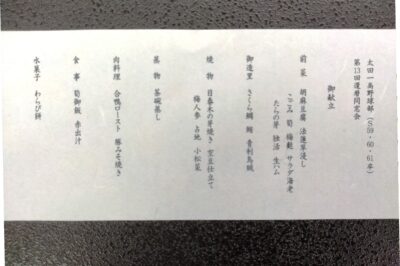 太田一高野球部(S59・60・61卒)
第13回還暦同窓会
御献立
前菜 胡麻豆腐 法蓮草浸し
こごみ 筍 梅麩 サラダ海老
たらの芽 独活 生ハム
御造里 さくら鯛 鮪 青利烏賊
焼物 目春木の芽焼き 空豆仕立て
梅人参 占地 小松菜
蒸物 茶碗蒸し
肉料理 合鴨ロースト 豚みそ焼き
食事 筍御飯 赤出汁
水菓子 わらび餅